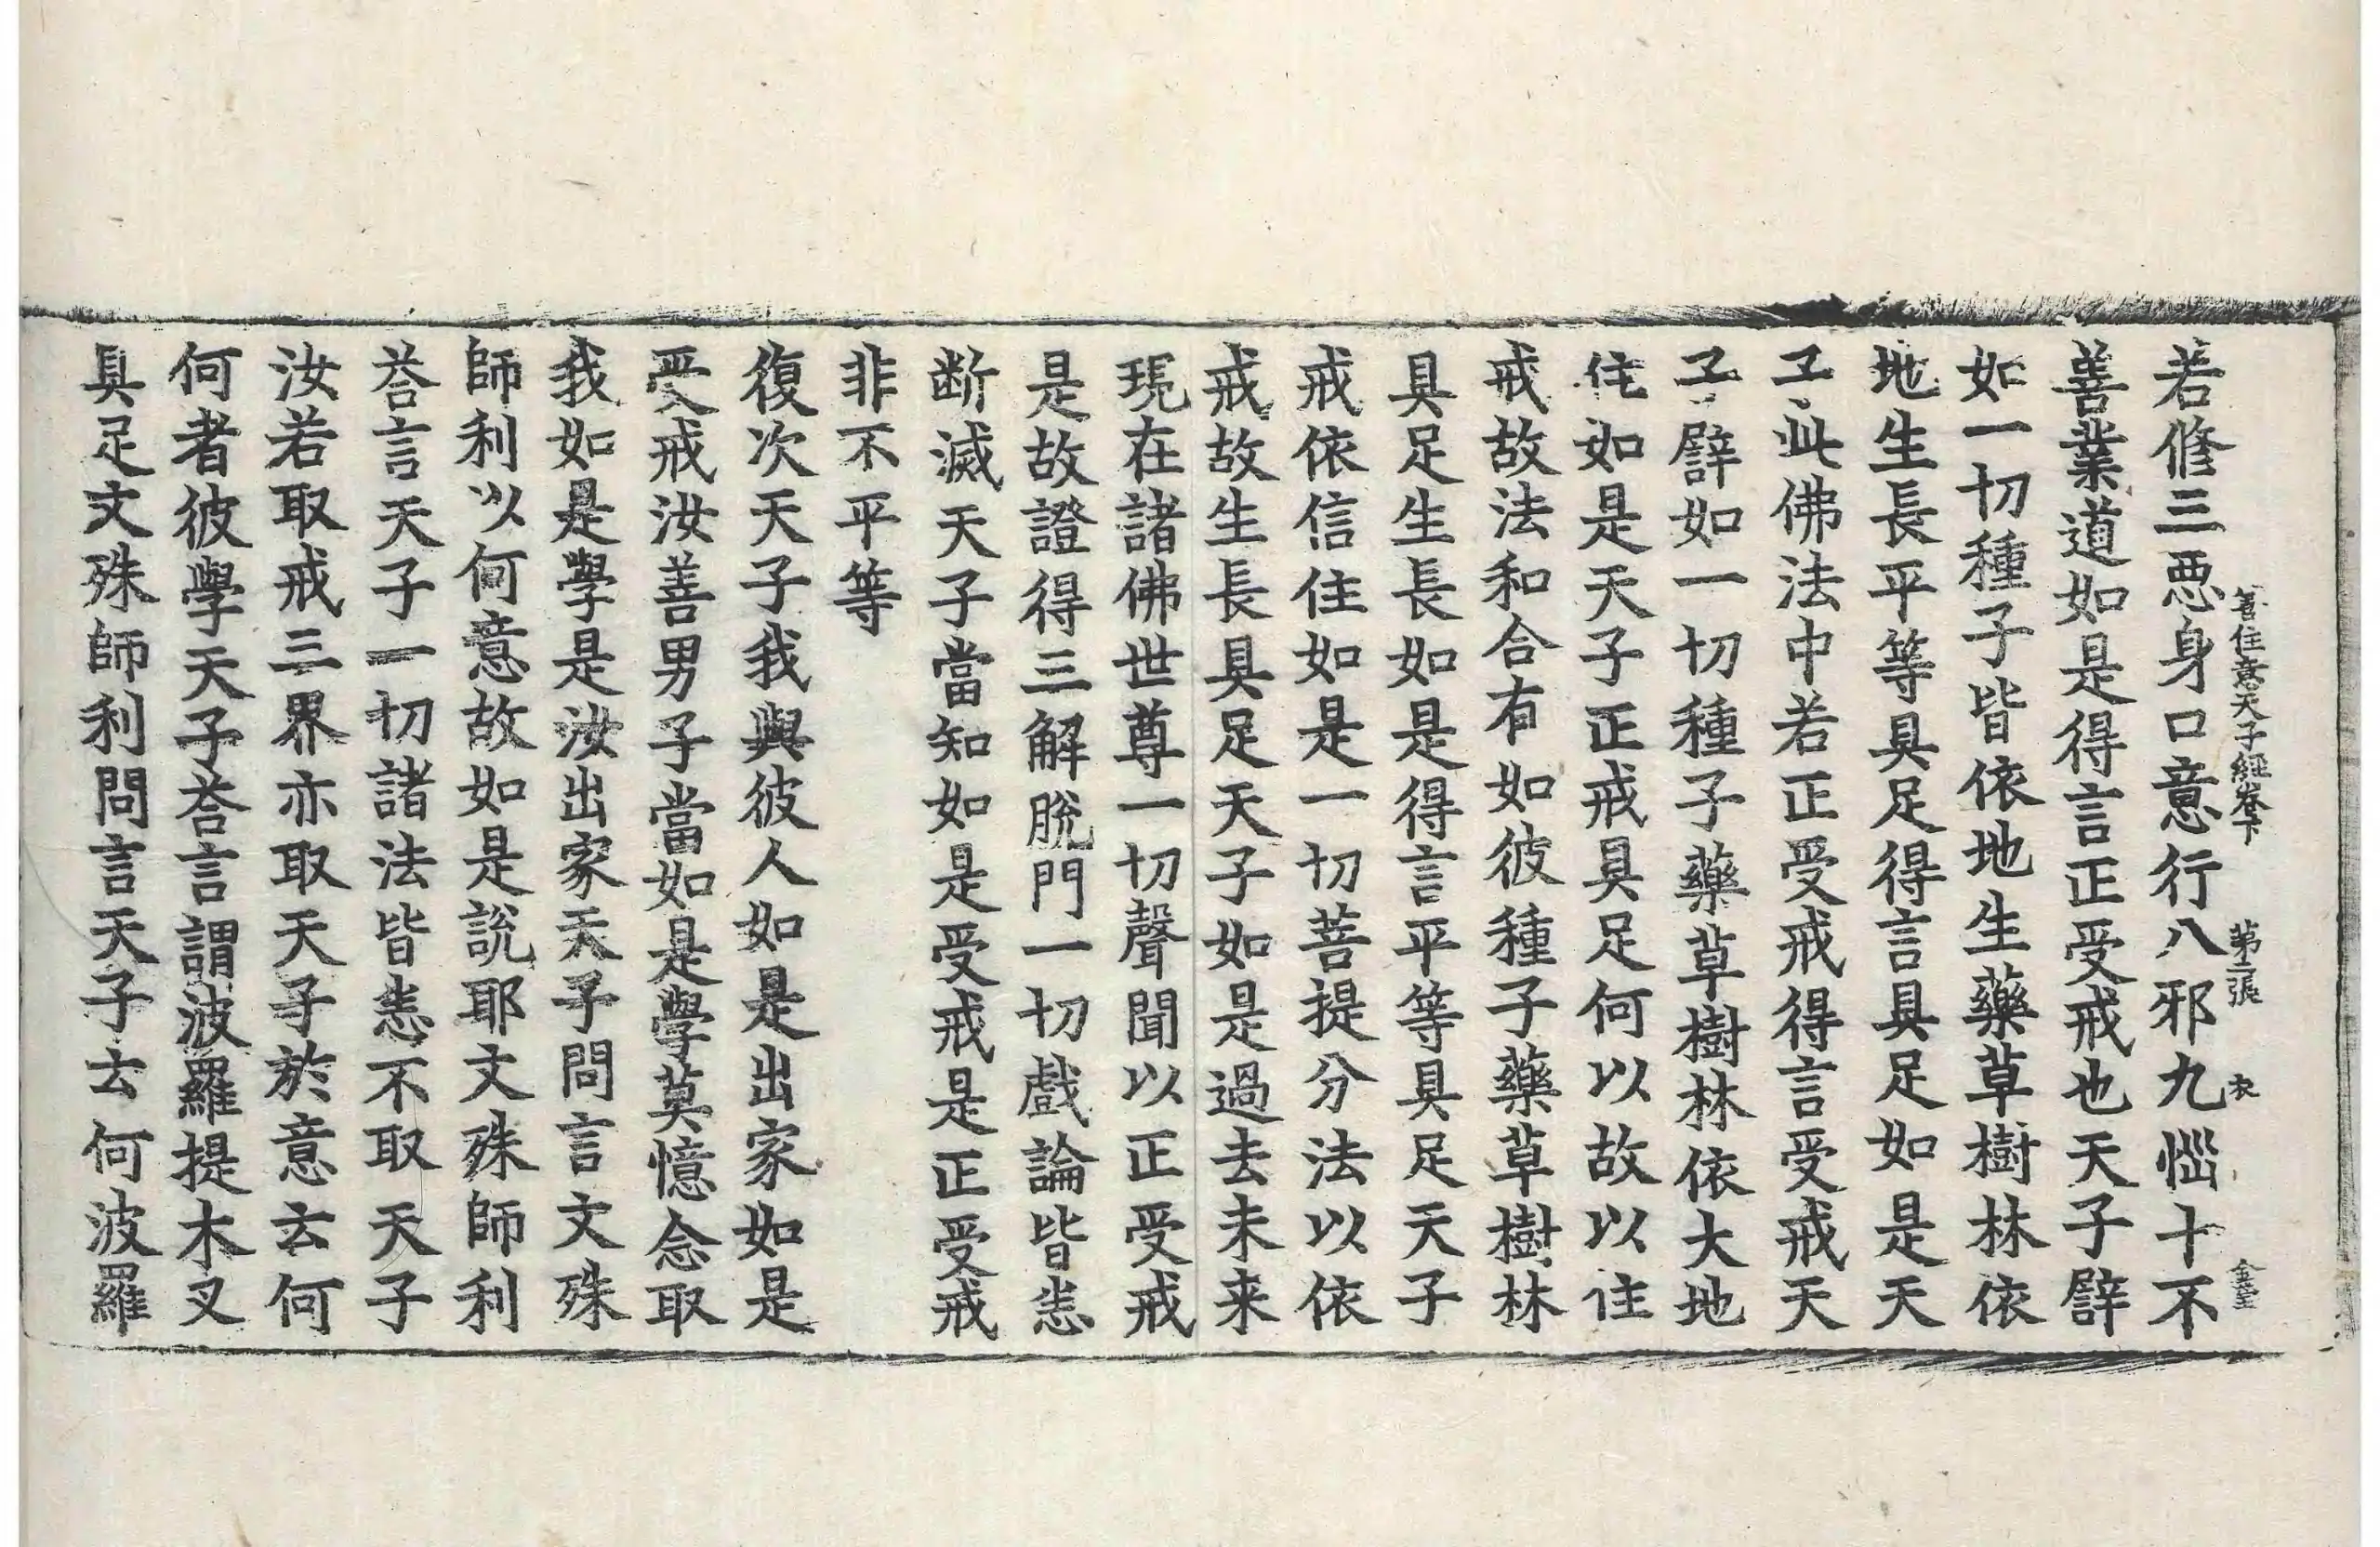 善住意天子經卷下 第二張 衣 金堂
若修三惡身口意行八邪九惱十不
善業道如是得言正受戒也天子譬
如一切種子皆依地生藥草樹林依
地生長平等具足得言具足如是天
子此佛法中若正受戒得言受戒天
子譬如一切種子藥草樹林依大地
住如是天子正戒具足何以故以住
戒故法和合有如彼種子藥草樹林
具足生長如是得言平等具足天子
戒依信住如是一切菩提分法以依
戒故生長具足天子如是過去未来
現在諸佛世尊一切聲聞以正受戒
是故證得三解脫門一切戲論皆悉
断滅天子當知如是受戒是正受戒
非不平等
復次天子我與彼人如是出家如是
受戒汝善男子當如是學莫憶念取
我如是學是汝出家天子問言文殊
師利以何意故如是說耶文殊師利
荅言天子一切諸法皆悉不取天子
汝若取戒三界亦取天子於意云何
何者彼學天子荅言謂波羅提木叉
具足文殊師利問言天子云何波羅